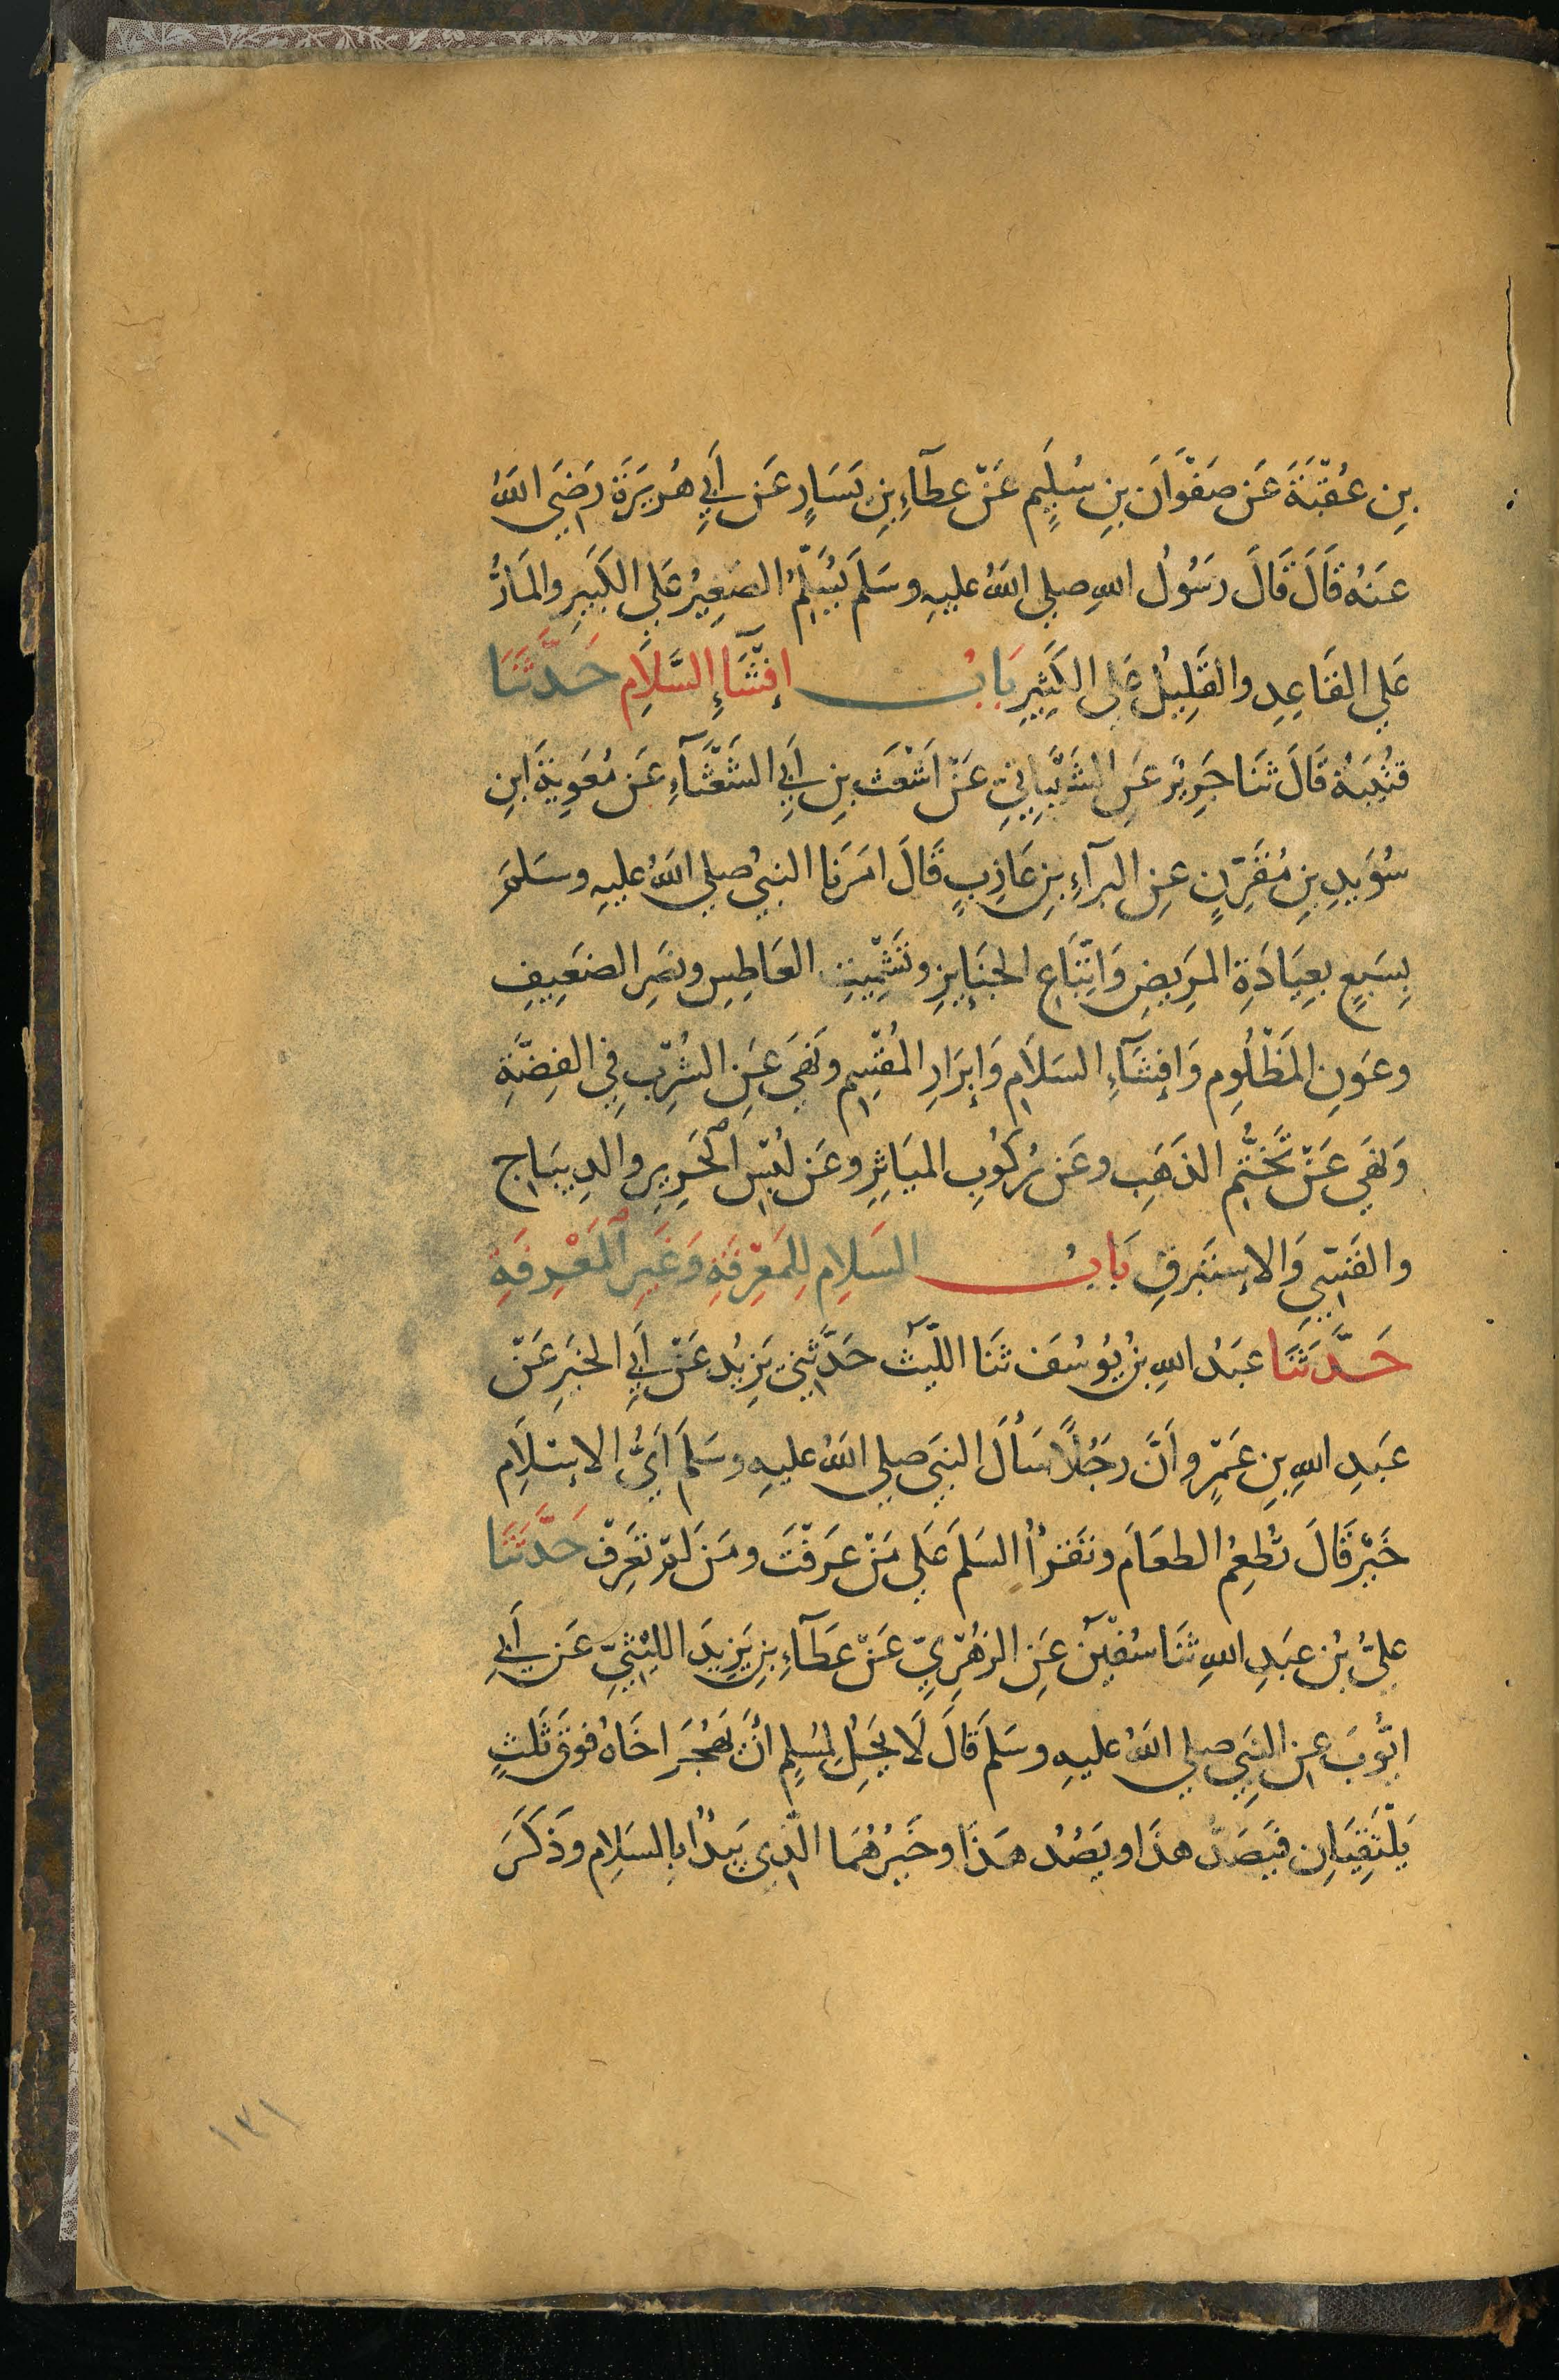 بنِ عُقْبَةَ عَن صَفْوَانَ بنِ سُلَيمٍ عَنْ عطآءِ بنِ يَسَارٍ عَن أَبِي هُرَيرَةَ رَضِيَ اللهُ
عَنهُ قَالَ قَالَ رَسُولُ اللهِ صلي اللهُ عليهِ وسَلمَ يُسَلِّمُ الصَغِيرُ عَلي الكَبِيرِ والمَارُّ
عَلي القَاعِدِ والقَلِيلُ عَلى الكَثِيرِ بَابُ إفْشَآءِ السَّلَامِ حَدَّثَنَا
قتُيبَةُ قَالَ ثَنَا جَرِيرٌ عَنِ الشَيْبَانِيِّ عَنْ اَشْعَثَ بنِ أَبِي الشَعْثَآءِ عَن مُعَوِيَةَ ابنِ
سُوَيدِ بنِ مُقَرِّنٍ عنِ البرآءِ بنِ عَازِبٍ قَالَ امَرَنا النبيُ صلي اللهُ عليهِ وسَلمَ
بِسَبعٍ بعِيَادَةِ المرَيضِ وَاتِّبَاعِ الجنَايزِ وتَشْمِيتِ العَاطِسِ ونصَرِ الضعَيِيفِ
وعَونِ المَظْلُومِ وَافشَآءِ السَلاَمِ وَإبرَارِ المُقْسِمِ ونَهَي عَنِ الشُرْبِ فِي الفِضَّةِ
وَنَهَي عَنْ تَخَتُّمِ الذَهَبِ وعَن رُكُوبِ الميَاثِرِ وعَن لُبْسِ الحَرِيرِ والدِيبَاجِ
والقَسّيِ وَالإستَبرقِ بَابُ السَلامِ لِلمَعْرِفَةِ وَغَيرِ المَعْرِفَةِ
حَدَّثَنَا عبَدُ اللهِ بنُ يُوسُفَ ثنَا اللَّيْثُ حَدَّثَنِي يَزِيدُ عَنْ أَبِي الخيَرِ عَنْ
عبَدِ اللهِ بنِ عَمْرٍو أَنَّ رَجُلًا سَألَ النبَيَ صلي اللهُ عليهِ وسَلمَ اَيُّ الاسْلَامِ
خَيْرٌ قَالَ تُطعِمُ الطعَامَ وتَقرَأُ السَلَمَ عَلَي مَنْ عَرَفْتَ ومَن لمْ تعَرِفْ حَدَّثَنَا
عليُّ بنُ عبَدِ اللهِ ثنَا سُفْيَن عَنِ الزهُرْيِّ عَنْ عَطَآءِ بنِ يَزِيدَ اللَيْثِيّ عَن أَبِي
ايُّوبَ عنِ النبَيِ صلي اللهُ عليهِ وسَلمَ قَالَ لَا يَحِلُ لِمُسلِمٍ أنْ يَهْجُرَ اخَاهُ فَوقَ ثَلَثٍ
يَلْتَقِيَانِ فيَصَدُّ هذَا ويصَدُّ هَذَا وخَيرُهُمَا الّذِي يَبدَأُ بالسَلامِ وذَكَرَ
١٢١